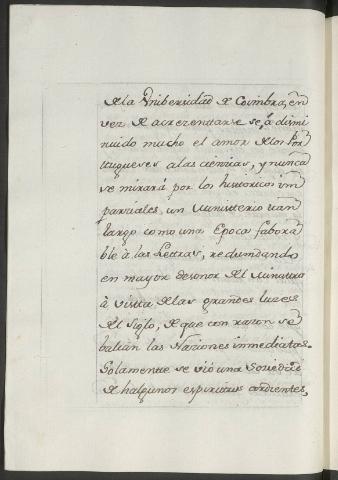 de la Vnibersidad de Coimbra, en
vez de acrezentarse se à dismi
nuido mucho el amor de los Por
tugueses a las ciencias, y nunca
se mirará por los historicos im
parziales, un Ministerio tan
largo como una Epoca fabora
ble à las Letras, redundando
en mayor desonor del Ministra
à vista de las grandes luzes
del Siglo, de que con razon se
balian las Naziones inmediatas.
Solamente se viò una Soziedad
de halgunos espiritus ardientes,